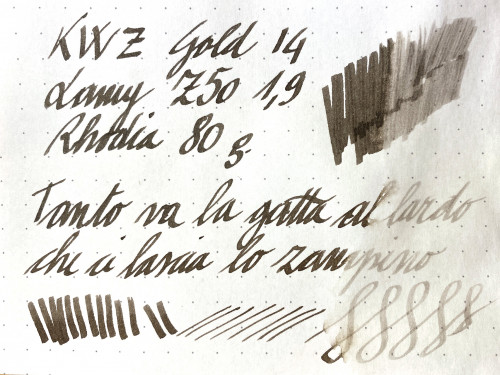 KWZ Gold 14
Lamy Z50 1,9
Rhodia 80 g
Tanto va la gatta al lardo
che ci lascia lo zampino